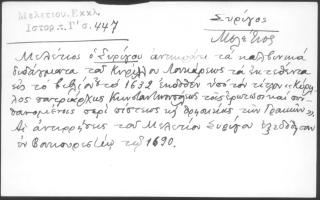 Μελετίου. Εκκλ.
Ιστορ. τ. Γ' σ. 447
Συρίγος
Μελέτιος
Μελέτιος ὁ Συρίγου ἀντικρούει τὰ καλβινικὰ
διδάγματα τοῦ Κυρίλλου Λουκάρεως τὰ ἐκτεθέντα
εἰς τὸ βιβλίον τὸ 1632 ἐκδοθὲν ὑπὸ τὸν τίτλον «Κυρίλ-
λου πατριάρχου Κωνσταντινουπόλεως
περὶ πίστεως καὶ θρησκείας τῶν Γραικῶν».
Αἱ ἀντιρρήσεις τοῦ Μελετίου Συρίγου ἐξεδόθησαν
ἐν Βουκουρεστίῳ τῷ 1690.